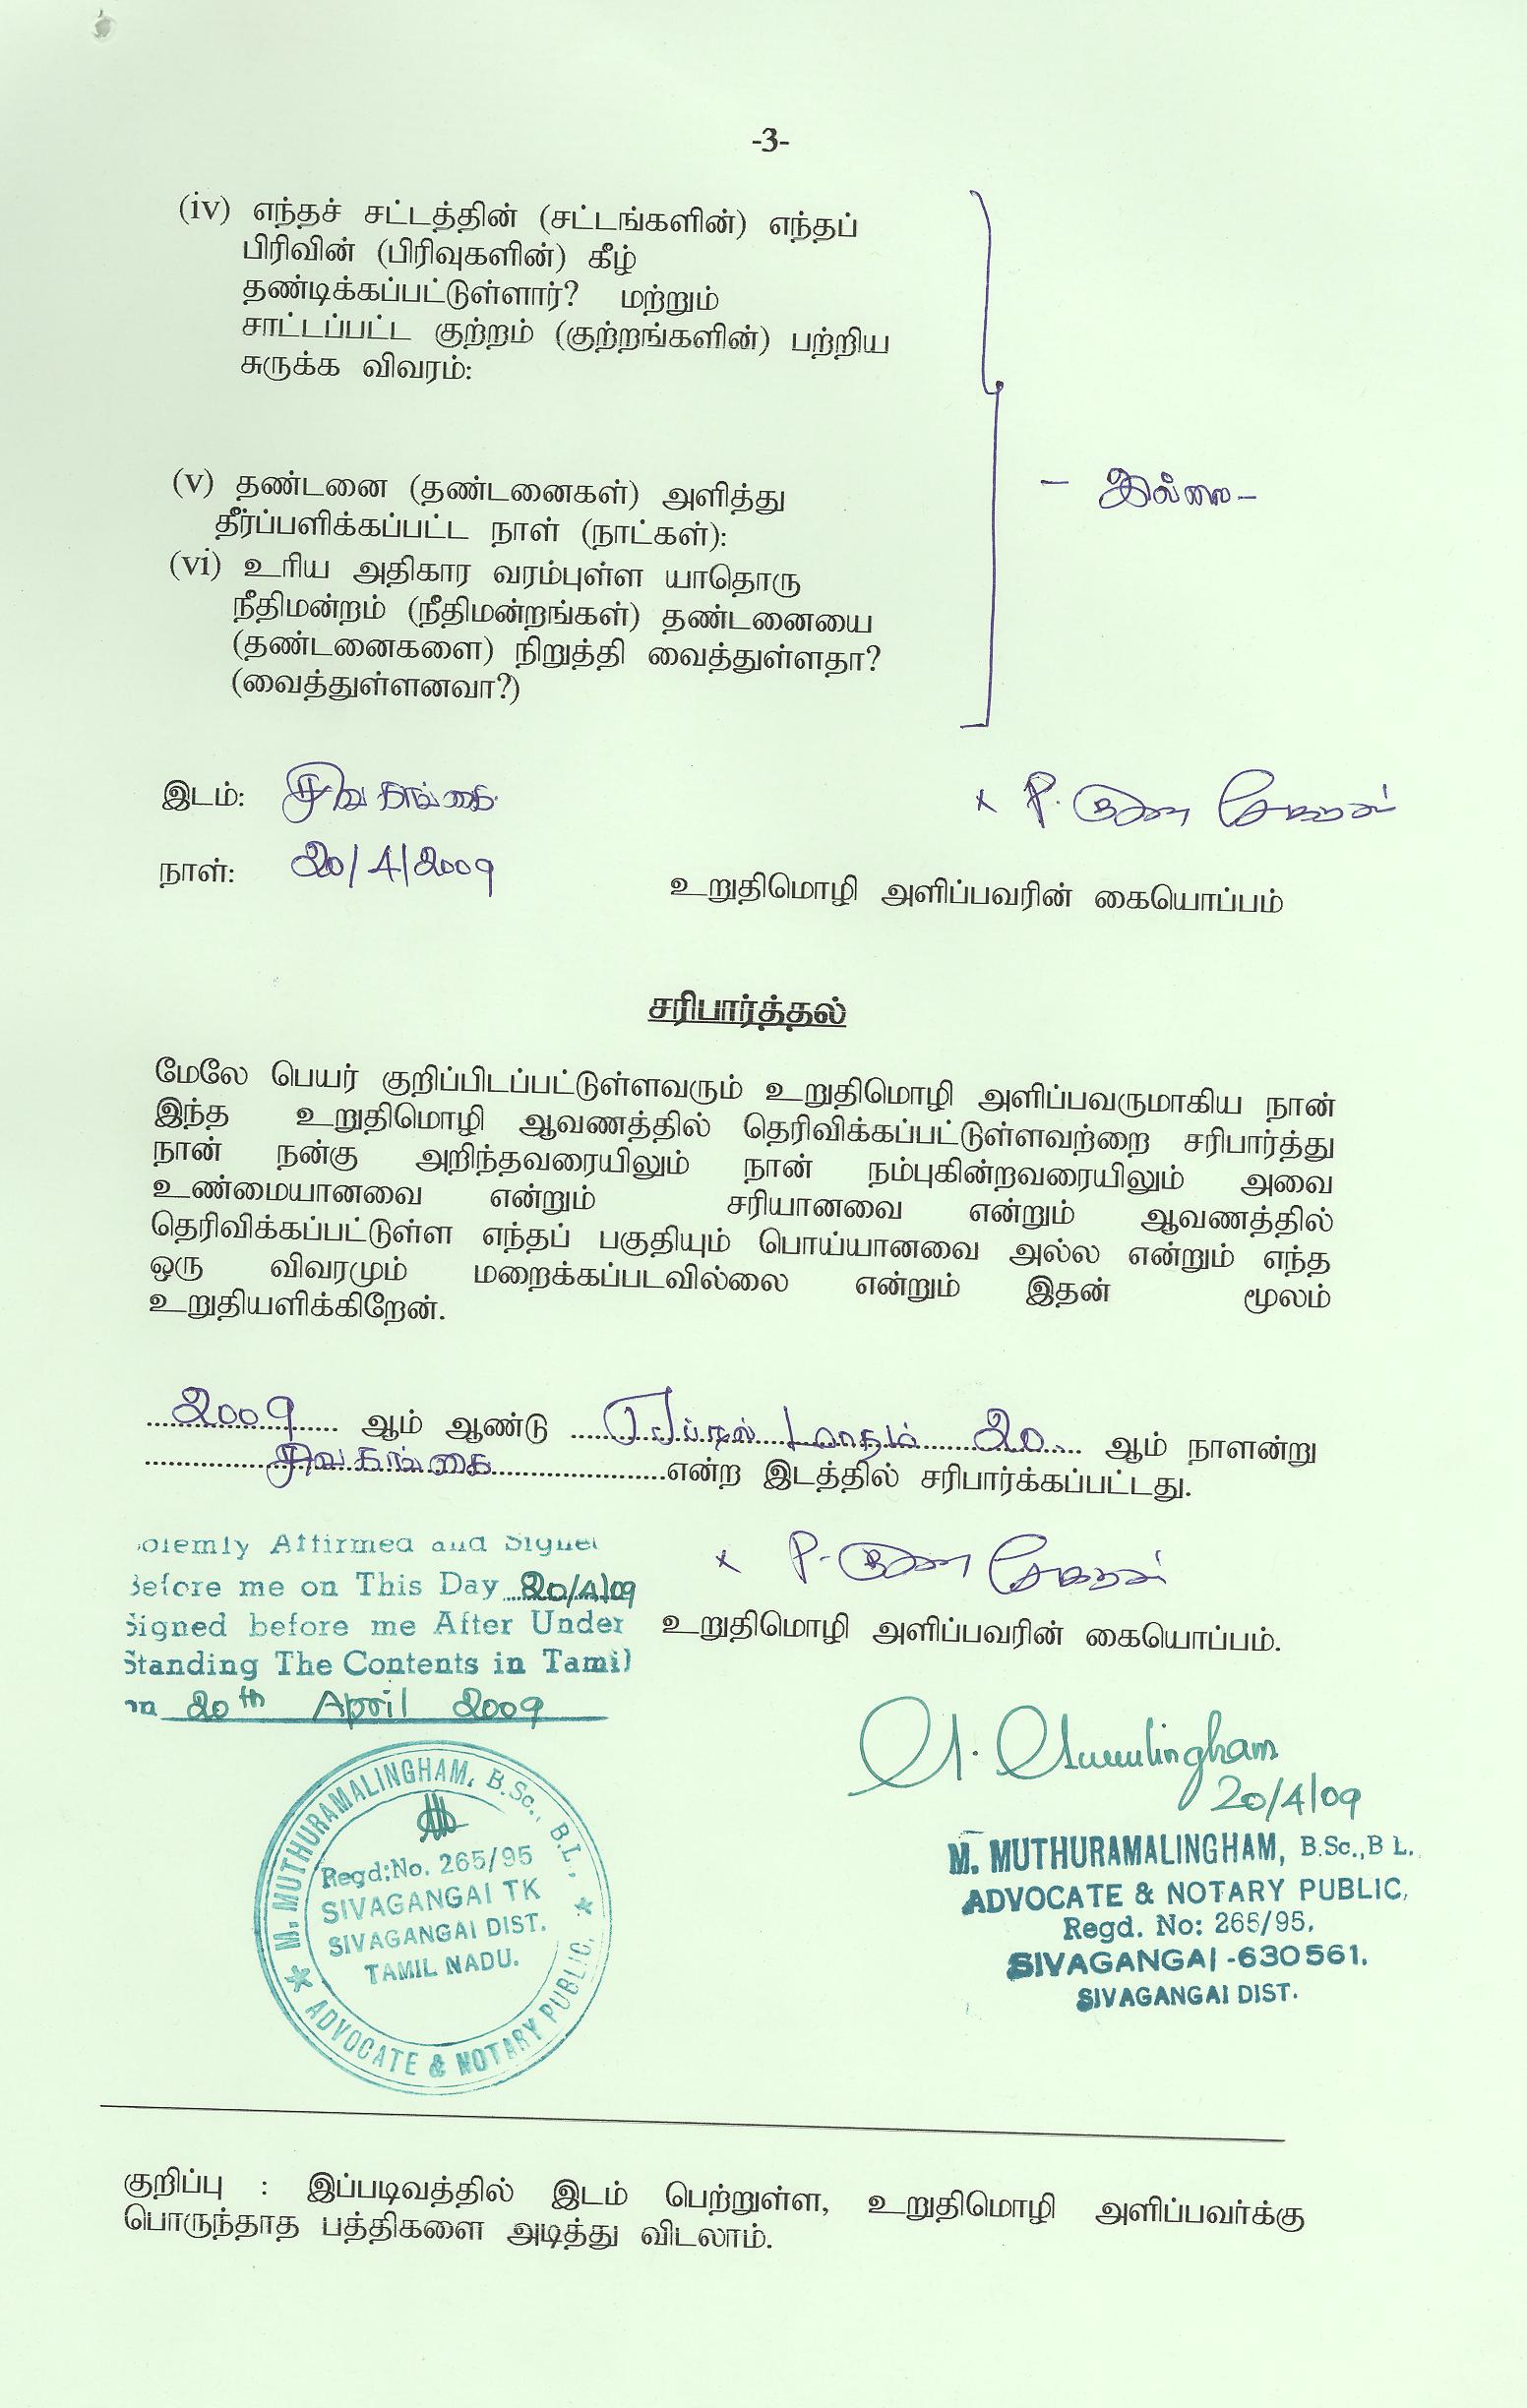 -3-
(iv) எந்தச் சட்டத்தின் (சட்டங்களின்) எந்தப்
பிரிவின் (பிரிவுகளின்) கீழ்
தண்டிக்கப்பட்டுள்ளார்? மற்றும்
சாட்டப்பட்ட குற்றம் (குற்றங்களின்) பற்றிய
சுருக்க விவரம்:
(v) தண்டனை (தண்டனைகள்) அளித்து
தீர்ப்பளிக்கப்பட்ட நாள் (நாட்கள்):
- இல்லை -
(vi) உரிய அதிகார வரம்புள்ள யாதொரு
நீதிமன்றம் (நீதிமன்றங்கள்) தண்டனையை
(தண்டனைகளை) நிறுத்தி வைத்துள்ளதா?
(வைத்துள்ளனவா?)
இடம்: சிவகங்கை
x P. குண சேகரன்
நாள்: 20/4/2009
உறுதிமொழி அளிப்பவரின் கையொப்பம்
சரிபார்த்தல்
மேலே பெயர் குறிப்பிடப்பட்டுள்ளவரும் உறுதிமொழி அளிப்பவருமாகிய நான்
இந்த உறுதிமொழி ஆவணத்தில் தெரிவிக்கப்பட்டுள்ளவற்றை சரிபார்த்து
நான் நன்கு அறிந்தவரையிலும் நான் நம்புகின்றவரையிலும் அவை
உண்மையானவை என்றும் சரியானவை என்றும் ஆவணத்தில்
தெரிவிக்கப்பட்டுள்ள எந்தப் பகுதியும் பொய்யானவை அல்ல என்றும் எந்த
ஒரு விவரமும் மறைக்கப்படவில்லை என்றும் இதன் மூலம்
உறுதியளிக்கிறேன்.
2009 ஆம் ஆண்டு ஏப்ரல் மாதம் 20 ஆம் நாளன்று
சிவகங்கை என்ற இடத்தில் சரிபார்க்கப்பட்டது.
olemly Affirmed and Signed
Before me on This Day 20/4/09
Signed before me After Under
Standing The Contents in Tamil
on 20th April 2009
x P. குண சேகரன்
உறுதிமொழி அளிப்பவரின் கையொப்பம்.
20/4/09
M. MUTHURAMALINGHAM, B.Sc., B.L.,
Regd:No. 265/95
SIVAGANGAI TK
SIVAGANGAI DIST.
TAMIL NADU.
ADVOCATE & NOTARY PUBLIC,
M. MUTHURAMALINGHAM, B.Sc.,B L.
ADVOCATE & NOTARY PUBLIC,
Regd. No: 265/95,
SIVAGANGAI -630561.
SIVAGANGAI DIST.
குறிப்பு : இப்படிவத்தில் இடம் பெற்றுள்ள, உறுதிமொழி அளிப்பவர்க்கு
பொருந்தாத பத்திகளை அடித்து விடலாம்.